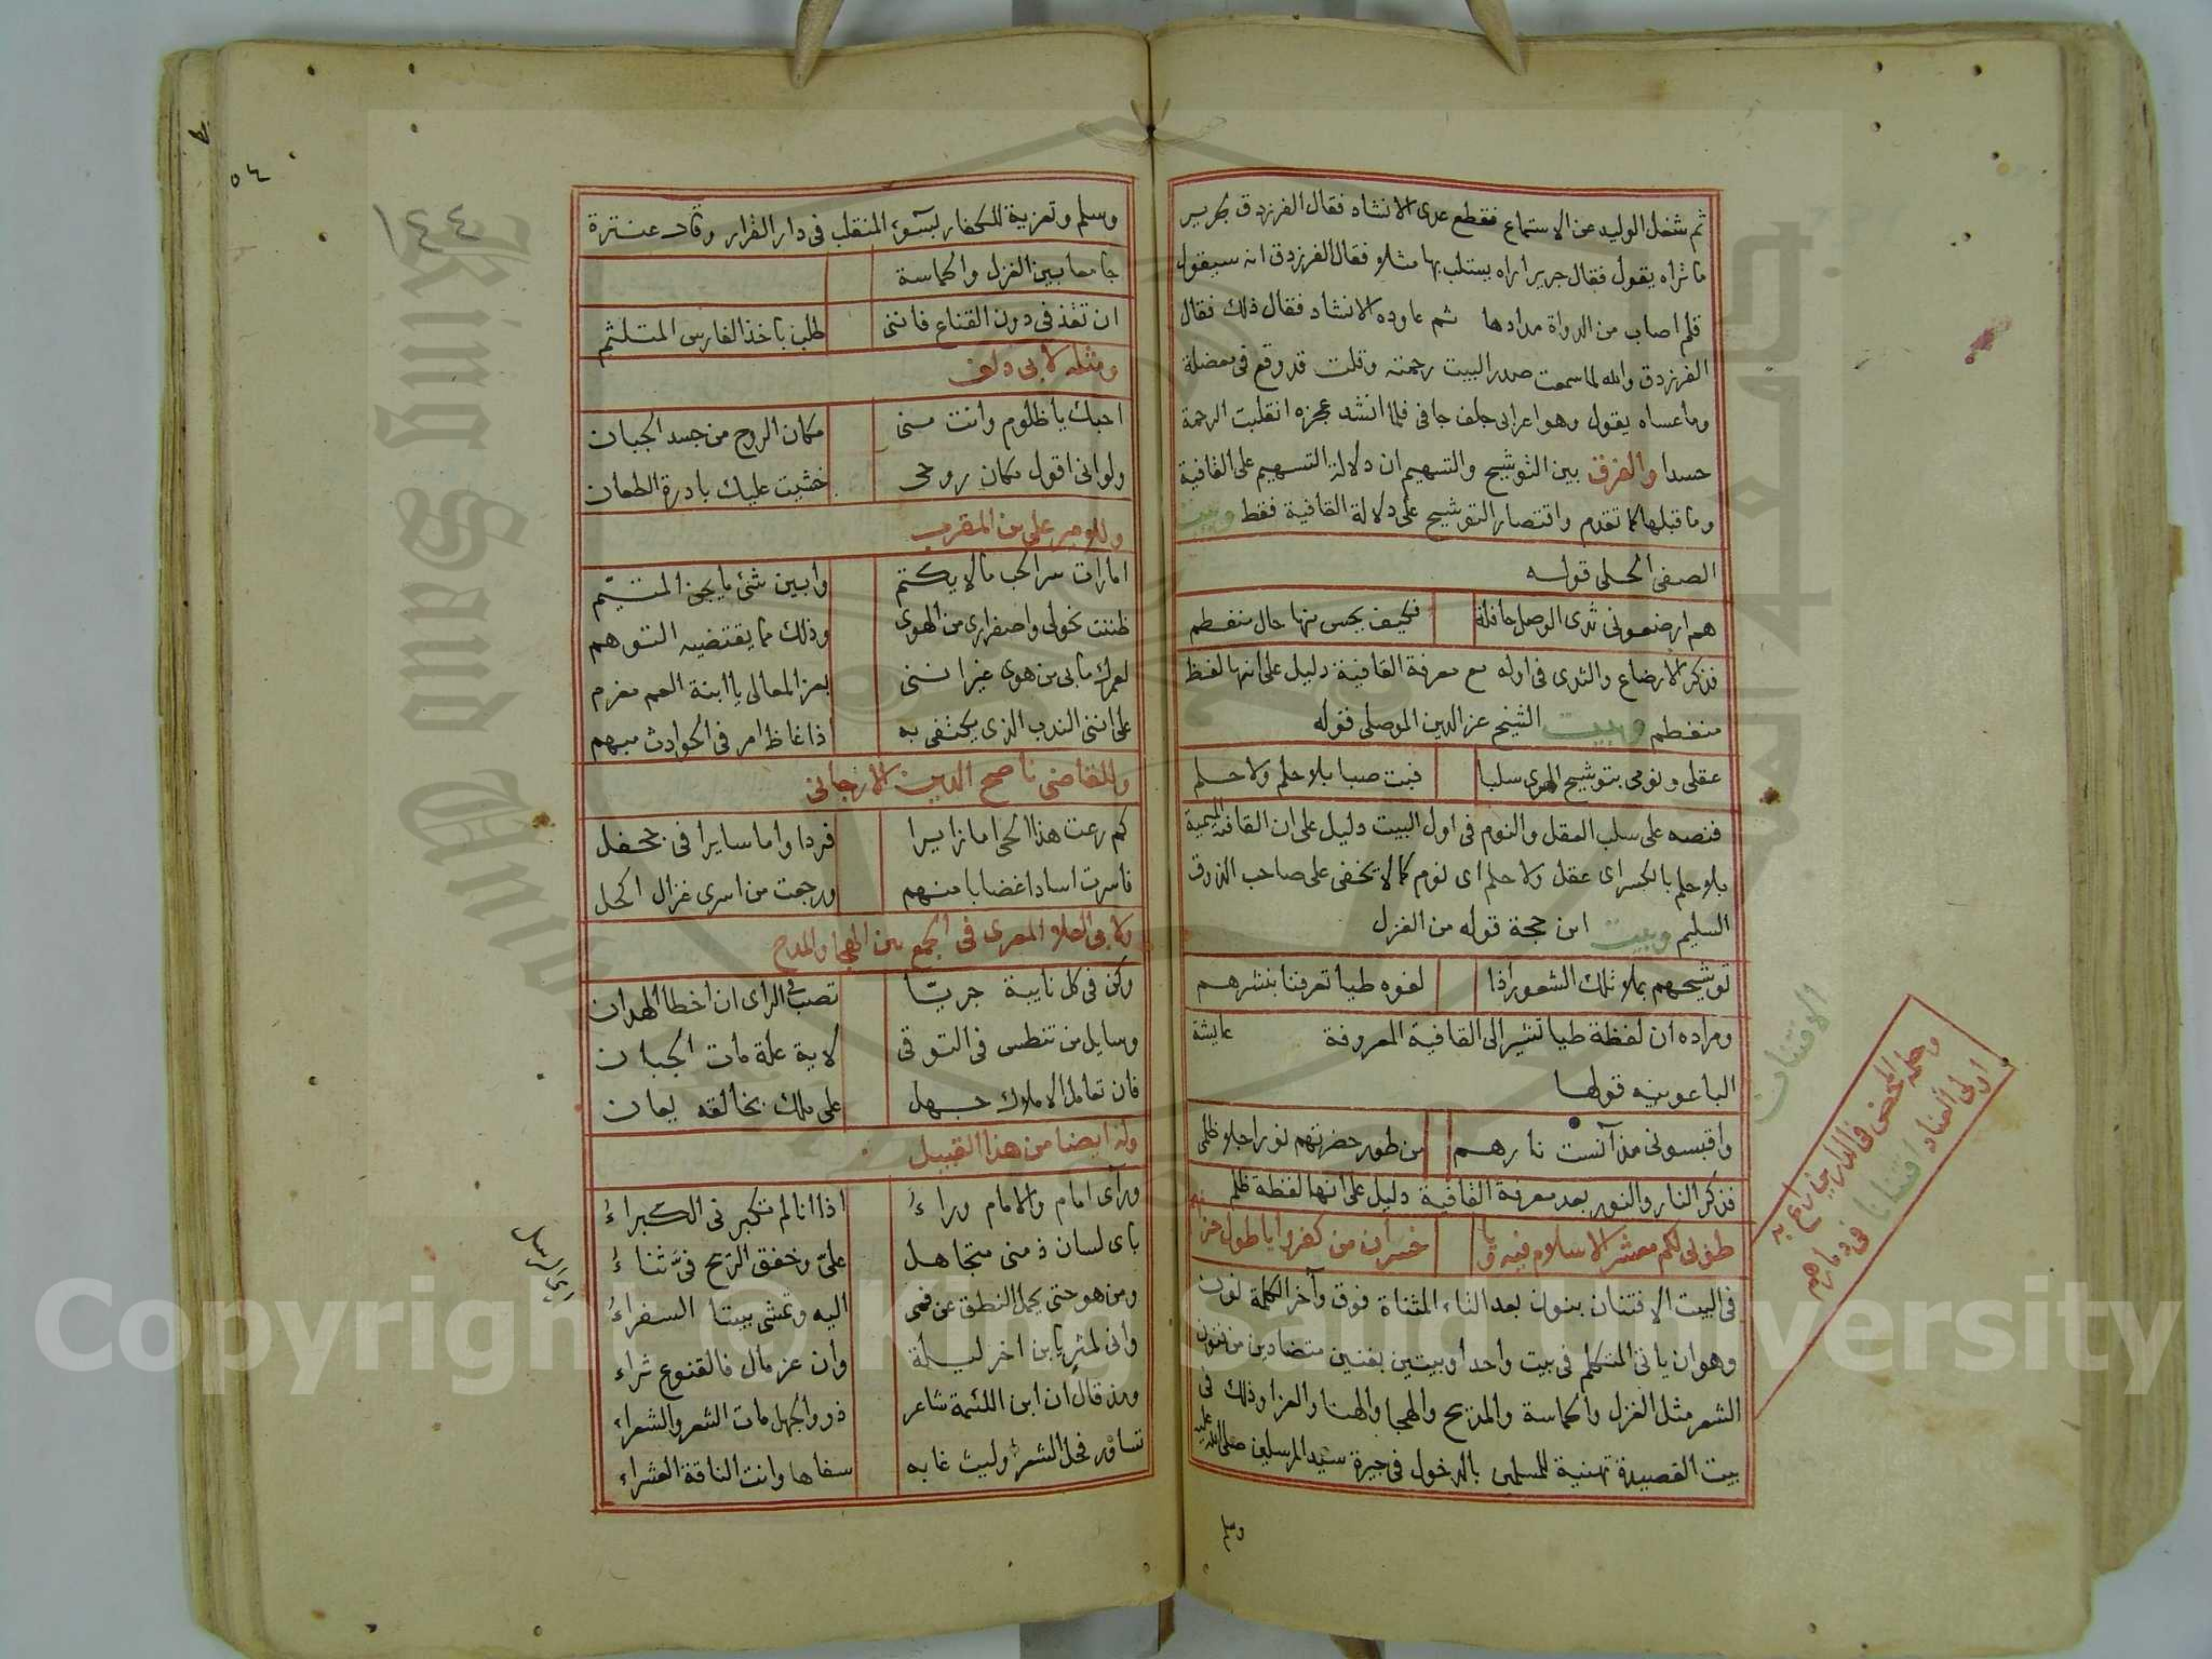 ثم شغل الوليد عن الاستماع فقطع عدى الانشاد فقال الفرزدق لجرير
ما تراه يقول فقال جرير اراه يستلب بها مثلا فقال الفرزدق انه سيقول
قلم اصاب من الدواة مدادها ثم عاوده الانشاد فقال ذلك فقال
الفرزدق والله لما سمعت صدر البيت رحمته وقلت قد وقع فى معضلة
وما عساه يقول وهو اعرابى جلف جافى فلما انشد عجزه انقلبت الرحمة
حسدا والفرق بين التوشيح والتسهيم ان دلالة التسهيم على القافية
وما قبلها كما تقدم واقتصار التوشيح على دلالة القافية فقط وبيت
الصفى الحلى قوله
هم ارضعونى ثدى الوصل حافلة فكيف يحسن منها حال منفطم
فذكر الارضاع والثدى فى اوله مع معرفة القافية دليل على انها لفظ
منفطم وبيت الشيخ عز الدين الموصلى قوله
عقلى ونومى بتوشيح الهوى سلبا فبت صبا بلا حلم ولا حلم
فنصه على سلب العقل والنوم فى اول البيت دليل على ان القافية الميمية
بلا حلم بالكسر اى عقل ولا حلم اى نوم كما لا يخفى على صاحب الذوق
السليم وبيت ابن حجة قوله من الغزل
توشيحهم بملا تلك الشعور اذا لفوه طيا تعرفنا بنشرهم
ومراده ان لفظة طيا تشير الى القافية المعروفة عايشة
الباعونيه قولها
واقبسونى مذ آنست نارهم من طور حضرتهم نورا جلا ظلمى
فذكر النار والنور بعد معرفة القافية دليل على انها لفظة ظلم
طوبى لكم معشر الاسلام فيه ويا خسران من كفروا يا طول حزنهم
فى البيت الافتنان بنون بعد التاء المثناة فوق وآخر الكلمة نون
وهو ان ياتى المتكلم فى بيت واحد او بيتين بفنين متضادين من فنون
الشعر مثل الغزل والحماسة والمديح والهجا والهنا والعزا وذلك فى
بيت القصيدة تهنية للمسلمين بالدخول فى جيرة سيد المرسلين صلى الله عليه
وسلم
الافتنان
اولى العناد افتنانا فى ذمارهم
وسلم وتعزية للكفار لبسوء المنقلب فى دار القرار وقال عنترة
جامعا بين الغزل والحماسة
ان تغذفى دون القناع فاننى طلب باخذ الفارس المتلثم
ومثله لابى دلف
احبك يا ظلوم وانت منى مكان الروح من جسد الجبان
ولو انى اقول مكان روحى خشيت عليك بادرة الطعان
وللامير على بن المقرب
امارات سر الحب ما لا يكتم وابين شئ ما يجن المتيّم
ظننت نحولى واصفرارى من الهوى وذلك مما يقتضيه التوهم
لعمرك ما بى من هوى غير اننى بعز المعالى يا ابنة العم مغرم
على اننى الندب الذى يكتفى به اذا غاظ امر فى الحوادث مبهم
وللقاضى ناصح الدين الارجانى
كم رعت هذا الحى اما زايرا فردا واما سايرا فى جحفل
فاسرت اسادا غضابا منهم ورجعت من اسرى غزال اكحل
ولابى العلا المعرى فى الجمع بين الهجا والمدح
وكن فى كل نايبة جريّا تصب فى الراى ان اخطا الهدان
وسايل من تنطس فى التوقى لاية علة مات الجبان
فان تعامل الاملاك جهل على ملك بخالقه يعان
وله ايضا من هذا القبيل
ورآى امام والامام وراءُ اذا انا لم تكبر نى الكبراءُ
باى لسان ذمنى متجاهل علىّ وخفق الريح فىّ ثناءُ
ومن هو حتى يحمل النطق عن فمى اليه وتمشى بيننا السفراءُ
وانى لمثر يا بن اخر ليلة وان عز مال فالقنوع ثراء
ومذ قال ان ابن اللئمة شاعر ذووا الجهل مات الشعر والشعراء
تساور فحل الشعر وليث غابه سفاها وانت الناقة العشراء
١٤٤
٥٤
Copyright © King Saud University
King Saud University